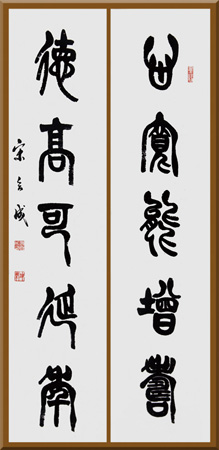 心寬能增壽
德高可延年
宋